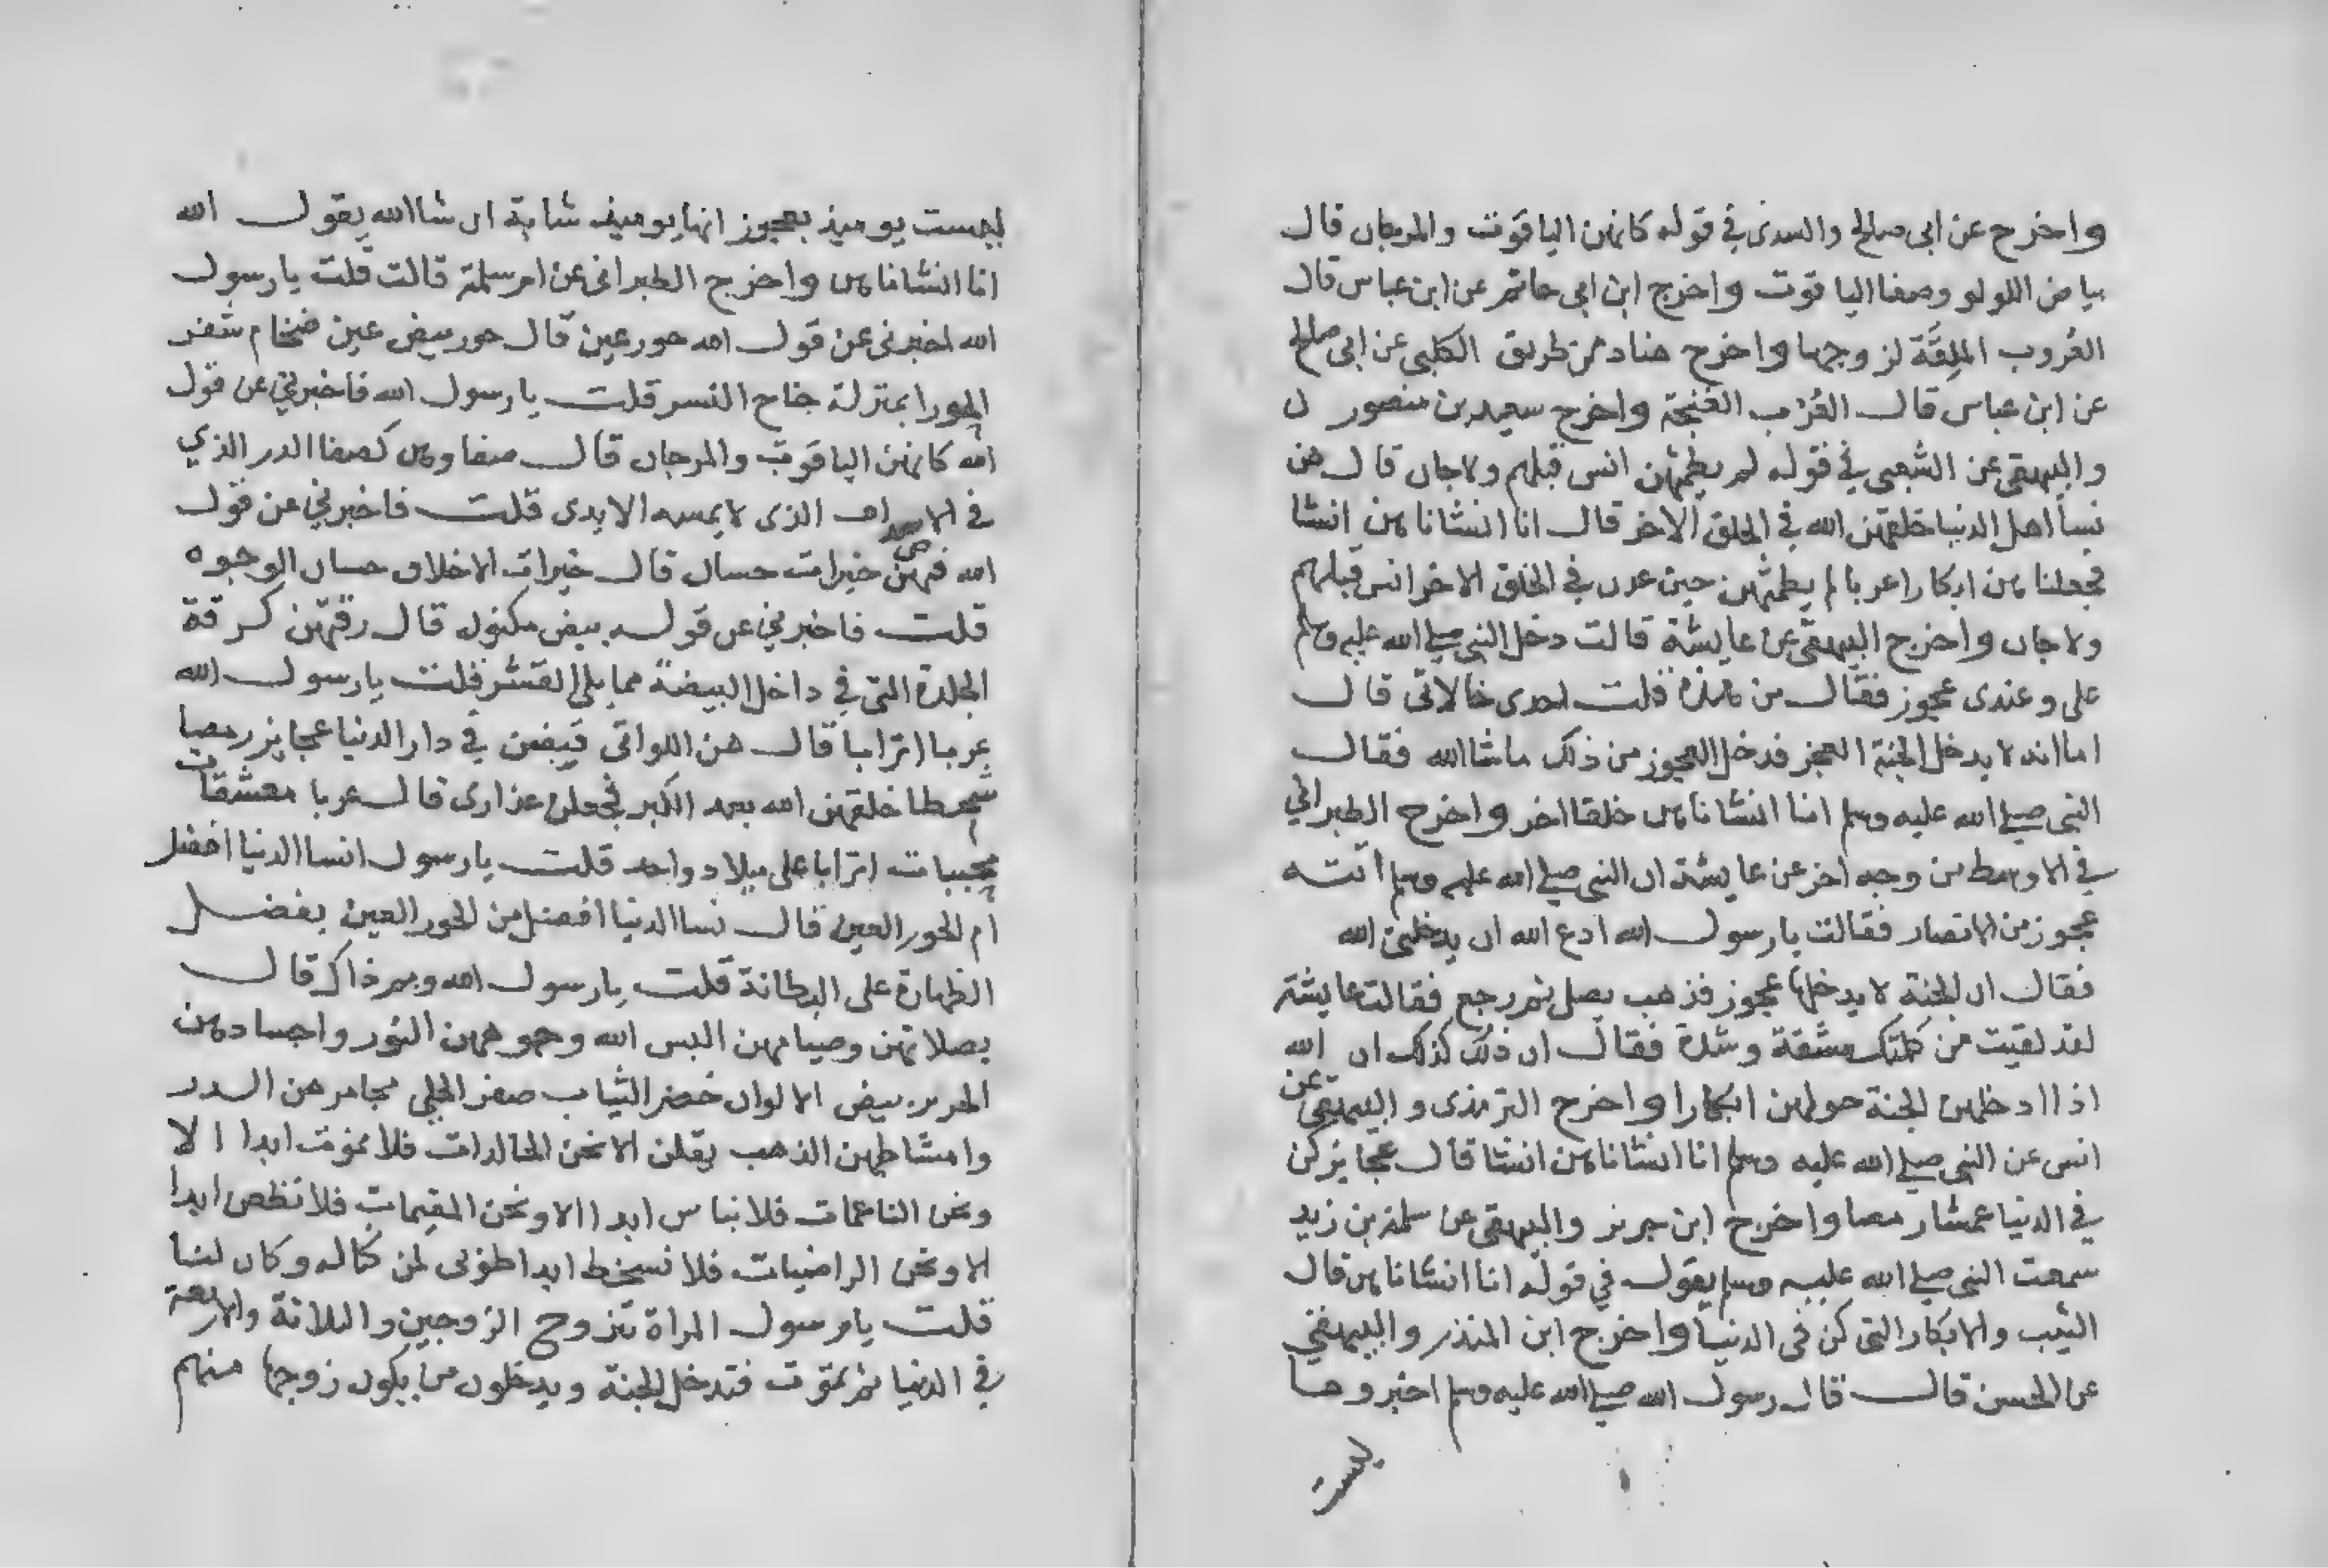 واخرج عن ابى صالح والسدى في قوله كانهن الياقوت والمرجان قال
بياض اللولو وصفا الياقوت واخرج ابن ابى حاتم عن ابن عباس قال
العُروب الملِقَة لزوجها واخرج هناد من طريق الكلبى عن ابى صالح
عن ابن عباس قال العُرُب الغنجة واخرج سعيد بن منصور
والبيهقى عن الشعبى في قوله لم يطمثهن انس قبلهم ولا جان قال هن
نسا اهل الدنيا خلقهن الله في الخلق الاخر قال انا انشاناهن انشا
فجعلناهن ابكارا عربا لم يطمثهن حين عدن في الخلق الاخر انس قبلهم
ولا جان واخرج البيهقى عن عايشة قالت دخل النبى صلى الله عليه وسلم
على وعندى عجوز فقال من هذه قلت احدى خالاتى قال
اما انه لا يدخل الجنة العجز فدخل العجوز من ذلك ماشا الله فقال
النبى صلى الله عليه وسلم انا انشاناهن خلقا اخر واخرج الطبراني
في الاوسط من وجه اخر عن عايشة ان النبى صلى الله عليه وسلم اتته
عجوز من الانصار فقالت يا رسول الله ادع الله ان يدخلنى الله
فقال ان الجنة لا يدخلها عجوز فذهب يصلى ثم رجع فقالت عايشة
لقد لقيت من كلمتك مشقة وشدة فقال ان ذلك كذلك ان الله
اذا ادخلهن الجنة حولهن ابكارا واخرج الترمذى والبيهقى عن
انس عن النبى صلى الله عليه وسلم انا انشاناهن انشا قال عجايز كن
في الدنيا عمشا رمصا واخرج ابن جرير والبيهقى عن سلمة بن زيد
سمعت النبى صلى الله عليه وسلم يقول في قوله انا انشاناهن قال
الثيب والابكار التى كن فى الدنيا واخرج ابن المنذر والبيهقي
عن الحسن قال قال رسول الله صلى الله عليه وسلم اخبروها
ليست
ليست يوميذ بعجوز انها يوميذ شابة ان شا الله يقول الله
انا انشاناهن واخرج الطبرانى عن ام سلمة قالت قلت يا رسول
الله اخبرنى عن قول الله حور عين قال حور بيض عين ضخام شفر
الحورا بمنزلة جناح النسر قلت يا رسول الله فاخبرني عن قول
الله كانهن الياقوت والمرجان قال صفاوهن كصفا الدر الذي
في الاصداف الذى لا يمسه الايدى قلت فاخبرني عن قول
الله فيهن خيرات حسان قال خيرات الاخلاق حسان الوجوه
قلت فاخبرني عن قوله بيض مكنون قال رقتهن كرقة
الجلدة التى في داخل البيضة مما يلى القشر قلت يا رسول الله
عربا اترابا قال هن اللواتى قبضن في دار الدنيا عجايز رمصا
شمطا خلقهن الله بعد الكبر فجعلن عذارى قال عربا معشقات
محببات اترابا على ميلاد واحد قلت يا رسول انسا الدنيا افضل
ام الحور العين قال نسا الدنيا افضل من الحور العين بفضل
الظهارة على البطانة قلت يا رسول الله وبم ذاك قال
بصلاتهن وصيامهن البس الله وجوههن النور واجسادهن
الحرير بيض الالوان خضر الثياب صفر الحلى مجامرهن الدر
وامشاطهن الذهب يقلن الا نحن الخالدات فلا نموت ابدا الا
ونحن الناعمات فلا نباس ابدا الا ونحن المقيمات فلا نظعن ابدا
الا ونحن الراضيات فلا نسخط ابدا طوبى لمن كنا له وكان لنا
قلت يا رسول المراة تتزوج الزوجين والثلاثة والاربعة
في الدنيا ثم تموت فتدخل الجنة ويدخلون من يكون زوجها منهم